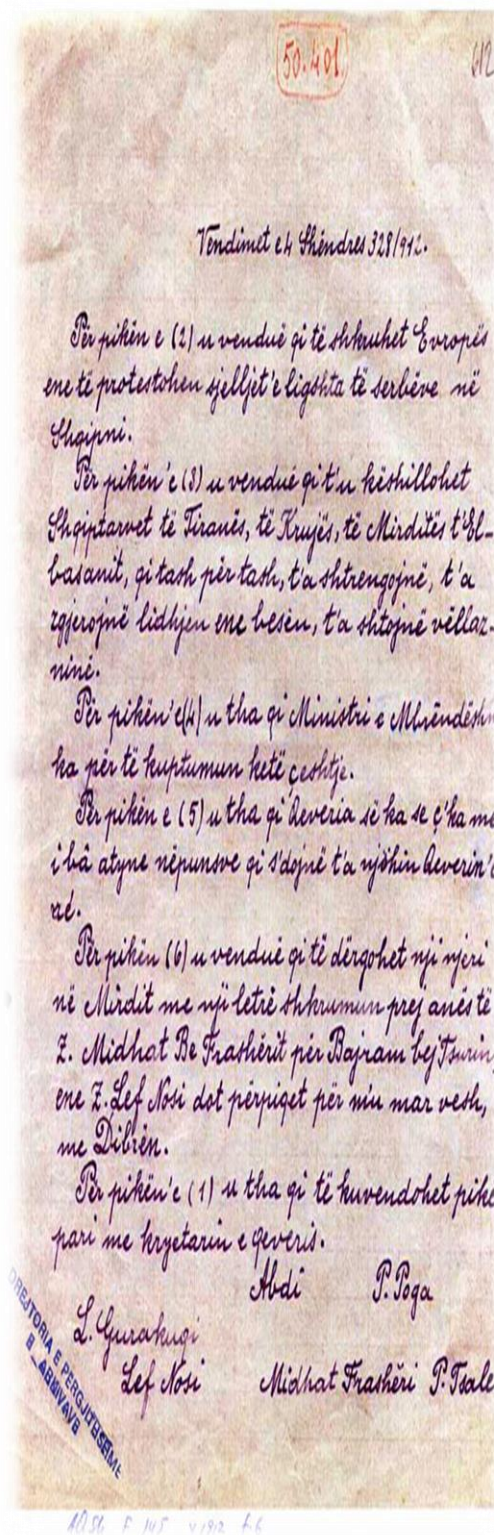 50.401
612
Vendimet e 4 Shëndres 328/912.
Për pikën e (2) u vendue qi të shkruhet Evropës
ene të protestohen sjelljet'e ligshta të serbëve në
Shqipni.
Për pikën'e (3) u vendue qi t'u këshillohet
Shqiptarvet të Tiranës, të Krujës, të Mirditës t'El-
basanit, qi tash për tash, t'a shtrengojnë, t'a
zgjerojnë lidhjen ene besën, t'a shtojnë vëllaz-
ninë.
Për pikën'e(4) u tha qi Ministri e Mbrëndëshm
ka për të kuptumun ketë çeshtje.
Për pikën e (5) u tha qi Qeveria së ka se ç'ka me
i bâ atyne nëpunsve qi s'dojnë t'a njohin Qeverin'e
re.
Për pikën (6) u vendue qi të dërgohet nji njeri
në Mirdit me nji letrë shkrumun prej anës të
Z. Midhat Be Frashërit për Bajram bej Tsurin,
ene Z. Lef Nosi dot përpiqet për miu mar vesh,
me Dibrën.
Për pikën'e (1) u tha qi të kuvendohet pikë
pari me kryetarin e qeveris.
Abdi P. Poga
L. Gurakuqi
Lef Nosi Midhat Frashëri P. Tsale
DREJTORIA E PERGJITHSHME
E ARKIVAVE